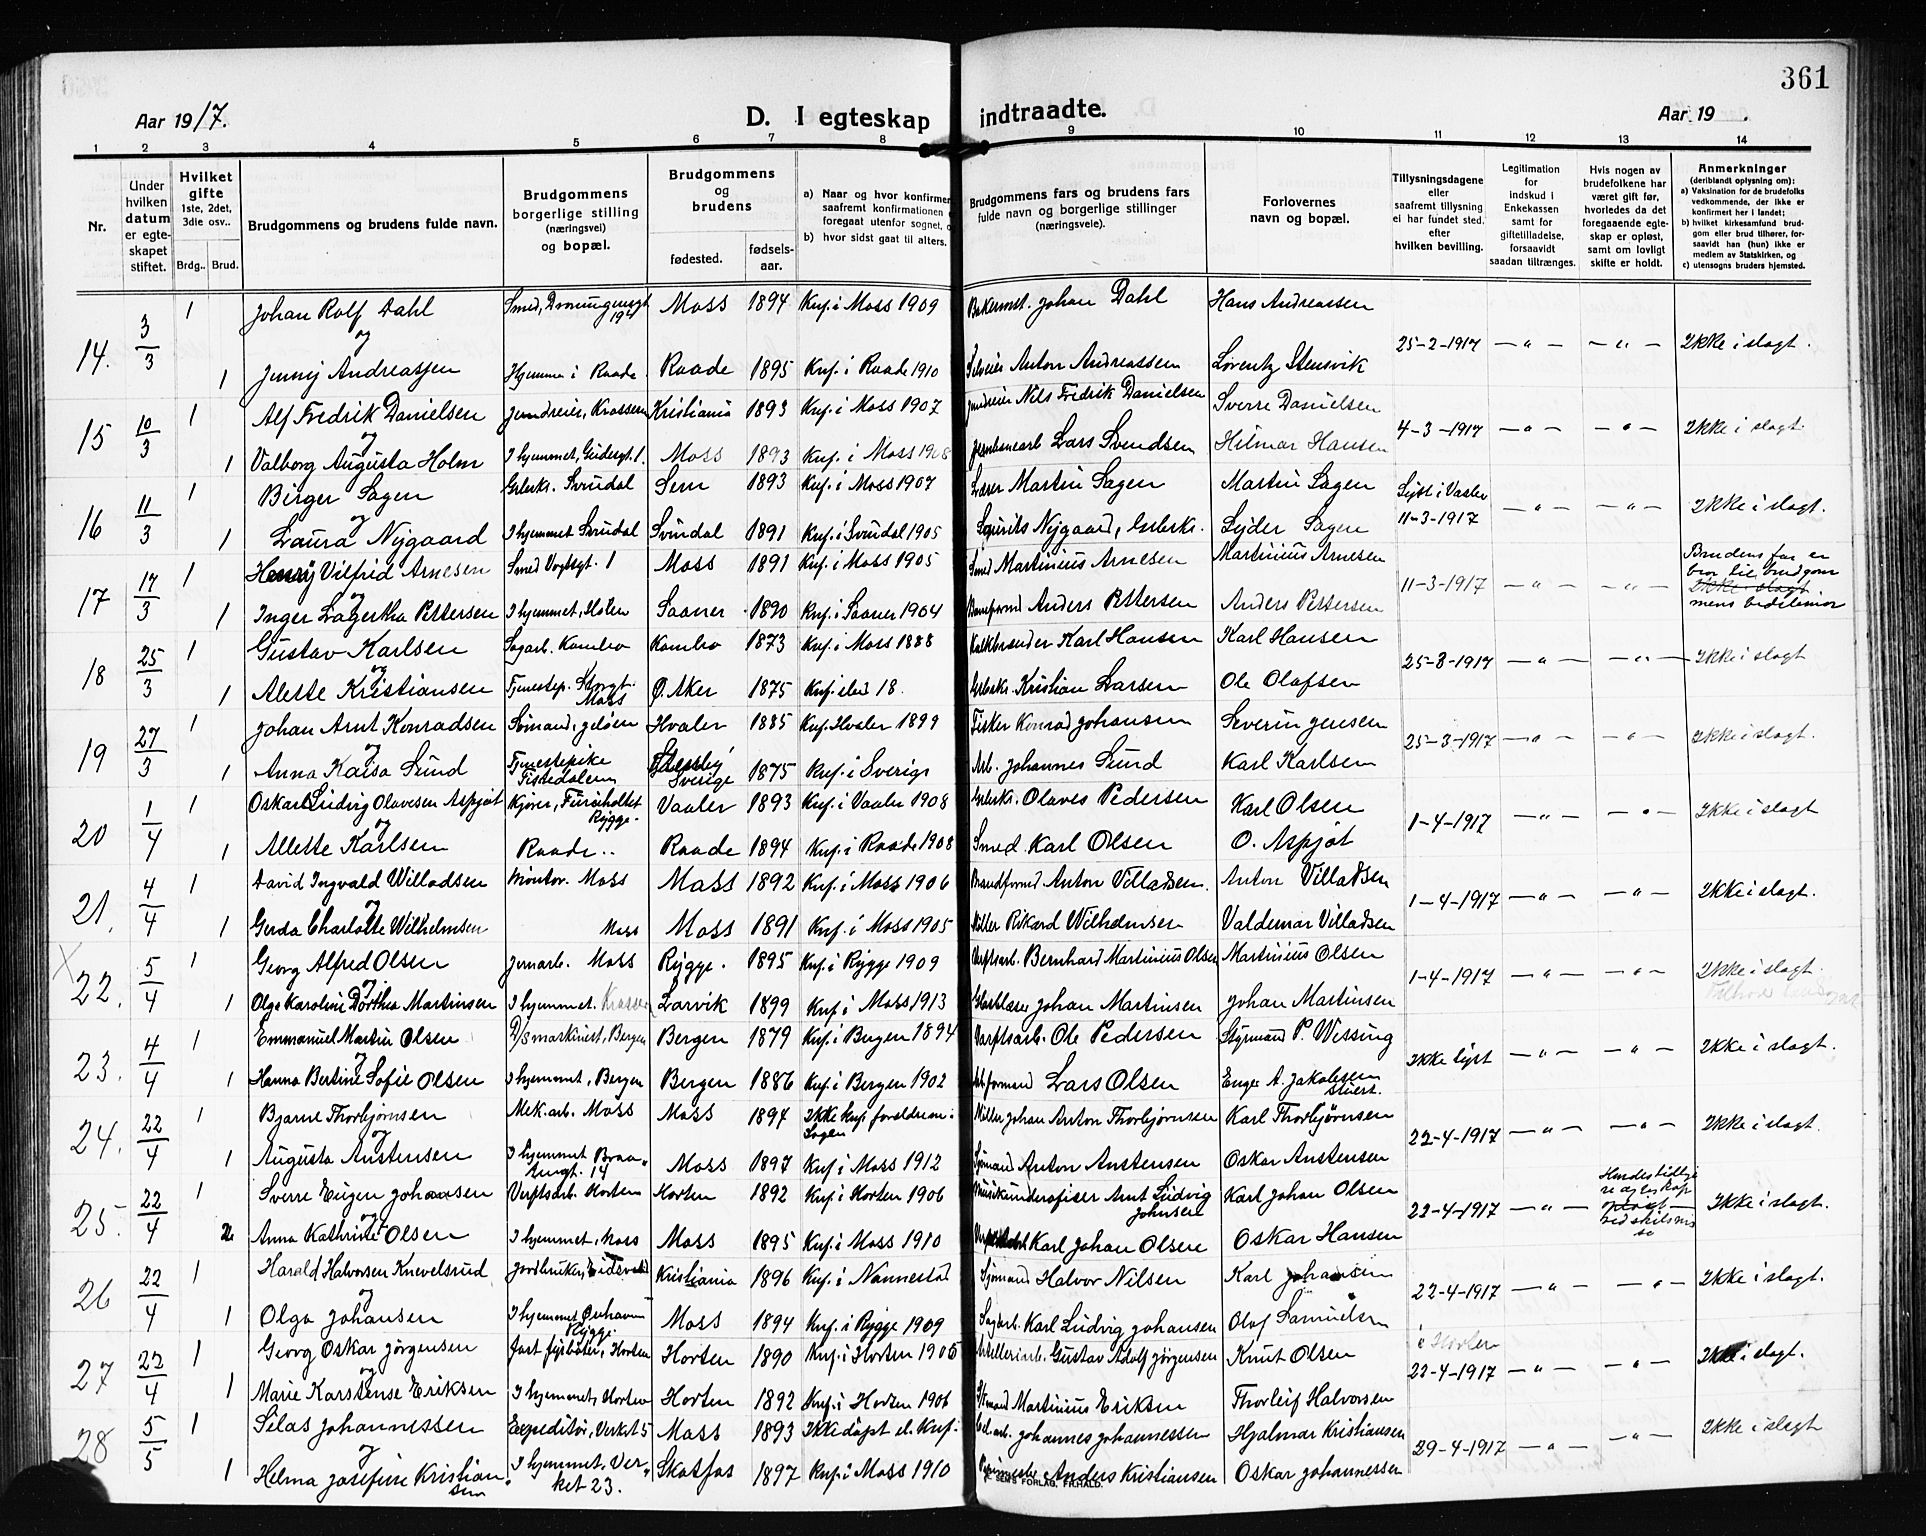 361
Aar 1917.
D. I egteskap indtraadte.
Aar 19 .
1 2 3 4 5 6 7 8 9 10 11 12 13 14
Nr.
Under hvilken datum er egteskapet stiftet.
Hvilket gifte 1ste, 2det, 3die osv..
Brdg.. Brud.
Brudgommens og brudens fulde navn.
Brudgommens borgerlige stilling (næringsvei) og bopæl.
Brudgommens og brudens
fødested. fødselsaar.
a) Naar og hvor konfirmer
saafremt konfirmationen
foregaat utenfor sognet, o
b) hvor sidst gaat til alters.
Brudgommens fars og brudens fars
fulde navn og borgerlige stillinger
(næringsveie).
Forlovernes navn og bopæl.
Tillysningsdagene eller saafremt tillysning ei har fundet sted. efter hvilken bevilling.
Legitimation for indskud i Enkekassen samt for giftetilladelse, forsaavidt saadan tiltrænges.
Hvis nogen av brudefolkene har været gift før, hvorledes da det foregaaende egteskap er opløst, samt om lovligt skifte er holdt.
Anmerkninger
(deriblandt oplysning om):
a) Vaksination for de brudefolks vedkommende, der ikke er konfirmert her i landet;
b) hvilket kirkesamfund brudgom eller brud tilhører, forsaavidt han (hun) ikke er medlem av Statskirken, og
c) utensogns bruders hjemsted.
14. 3/3 1 Johan Rolf Dahl Smed, Dronningensgt 19 Moss 1894 Knf. i Moss 1909 Bakermst. Johan Dahl Hans Andreassen
og 25-2-1917 — " — — " — Ikke i slagt.
1 Jenny Andreassen Hjemme i Raade Raade 1895 Knf. i Raade 1910 Anton Andreassen Lorentz Stensvik
15 10/3 1 Alf Fredrik Danielsen Kristiania 1893 Knf. i Moss 1907 Nils Fredrik Danielsen Sverre Danielsen
og 4-3-1917 — " — — " — Ikke i slagt.
1 Valborg Augusta Holm I hjemmet, Moss 1893 Knf. i Moss 1908 Lars Svendsen Hilmar Hansen
16 11/3 1 Birger Sagen Grbrkr. Svindal Sem 1893 Knf. i Moss 1907 Lærer Martin Sagen Martin Sagen
og Lyst i Vaaler 11-3-1917 — " — — " — Ikke i slagt.
1 Laura Nygaard I hjemmet Svindal Svindal 1891 Knf. i Svindal 1905 Nygaard, Grbrkr. Sagen
17 17/3 1 Henry Vilfrid Arnesen Smed Vogtsgt. 1 Moss 1891 Knf. i Moss 1905 Smed Martinius Arnesen Martinius Arnesen
og 11-3-1917 — " — — " — Brudens far er bror til brudgommens bedstemor
1 Inger Lagertha Pettersen I hjemmet, Saaner 1890 Knf. i Saaner 1904 Anders Pettersen Anders Pettersen
18 25/3 1 Gustav Karlsen Sagarb. Kambo Kambo 1873 Knf. i Moss 1888 Karl Hansen Karl Hansen
og 25-3-1917 — " — — " — Ikke i slagt
1 Alette Kristiansen Tjenestep. Storgt. Moss Ø. Aker 1875 Knf. sted 18. Grbrkr. Kristian Larsen Ole Olafsen
19 27/3 1 Johan Arnt Konradsen Sømand, Jeløen Hvaler 1885 Knf. Hvaler 1899 Fisker Konrad Johansen Severin Jensen
og 25-3-1917 — " — — " — Ikke i slagt.
1 Anna Kaisa Sund Tjenestepike Tistedalen Sverige 1875 Knf. i Sverige Arb. Johannes Sund Karl Karlsen
20 1/4 1 Oskar Ludvig Olavesen Aspjøt Kjører, Rygge. Vaaler 1893 Knf. i Vaaler 1908 Grbrkr. Olaves Pedersen Karl Olsen
og 1-4-1917 — " — — " — Ikke i slagt
1 Allette Karlsen Raade.. Raade 1894 Knf. i Raade 1908 Smed Karl Olsen O. Aspjøt
21. 4/4 1 David Ingvald Willadsen Montør. Moss Moss 1892 Knf. i Moss 1906 Brandformd. Anton Villadsen. Anton Villadsen
og 1-4-1917 — " — — " — Ikke i slagt.
1 Gerda Charlotte Wilhelmsen Moss Moss 1891 Knf. i Moss 1905 Møller Rikard Wilhelmsen Valdemar Villadsen
X 22. 5/4 1 Georg Alfred Olsen Jernarb. Moss Rygge. 1895 Knf. i Rygge 1909 Verftsarb. Bernhard Martinius Olsen Martinius Olsen
og 1-4-1917 — " — — " — Ikke i slagt.
1 Olga Karoline Dorthea Martinsen I hjemmet. Larvik 1899 Knf. i Moss 1913 Glasblaser Johan Martinsen Johan Martinsen
23. 4/4 1 Emmanuel Martin Olsen D/s maskinist, Bergen Bergen 1879 Knf. i Bergen 1894 Verftsarb. Ole Pedersen Styrmand P. Wessing
og Ikke lyst — " — — " — Ikke i slagt.
1 Hanna Bertine Sofie Olsen I hjemmet, Bergen Bergen 1886 Knf. i Bergen 1902 Arb.formand Lars Olsen Enger A. Jakobsen
24. 22/4 1 Bjarne Thorbjørnsen Mek. arb. Moss Moss 1894 Ikke knf. Møller Johan Anton Thorbjørnsen Karl Thorbjørnsen
og 22-4-1917 — " — — " — Ikke i slagt.
1 Augusta Anstensen I hjemmet 14 Moss 1897 Knf. i Moss 1912 Sjømand Anton Anstensen Oskar Anstensen
25. 22/4 1 Sverre Eugen Johansen Verftsarb. Horten Horten 1892 Knf. i Horten 1906 Musikunderofiser Arnt Ludvig Johnsen Karl Johan Olsen
og 22-4-1917 — " — Hendes tidligere egteskap opløst ved skilsmisse Ikke i slagt.
2 Anna Kathrine Olsen I hjemmet, Moss Moss 1895 Knf. i Moss 1910 Karl Johan Olsen Oskar Hansen
26 22/4 1 Harald Halvorsen Knevelsrud Jordbruker, Eidsvold Kristiania 1896 Knf. i Nannestad Sjømand Halvor Nilsen Karl Johansen
og 22-4-1917 — " — — " — Ikke i slagt.
1 Olga Johansen I hjemmet Rygge. Moss 1894 Knf. i Rygge 1909 Sagarb. Karl Ludvig Johansen Olaf Samuelsen
27 22/4 1 Georg Oskar Jørgensen Fast fyrbøter, Horten Horten 1890 Knf. i Horten 1905 Gustav Adolf Jørgensen Knut Olsen
og i Horten 22-4-1917 — " — — " — Ikke i slagt.
1 Marie Karstense Eriksen I hjemmet, Horten Horten 1892 Knf. i Horten 1906 Martinius Eriksen Thorleif Halvorsen
28 5/5 1 Silas Johannessen Expeditør, Verket 5 Moss 1893 Ikke døpt el. knf. Johannes Johannessen Hjalmar Kristiansen
og 29-4-1917 — " — — " — Ikke i slagt
1 Helma Josefine Kristiansen I hjemmet, Verket 23. Skotfos 1897 Knf. i Moss 1910 Anders Kristiansen Oskar Johannessen
SEMS FORLAG, FR.HALD.